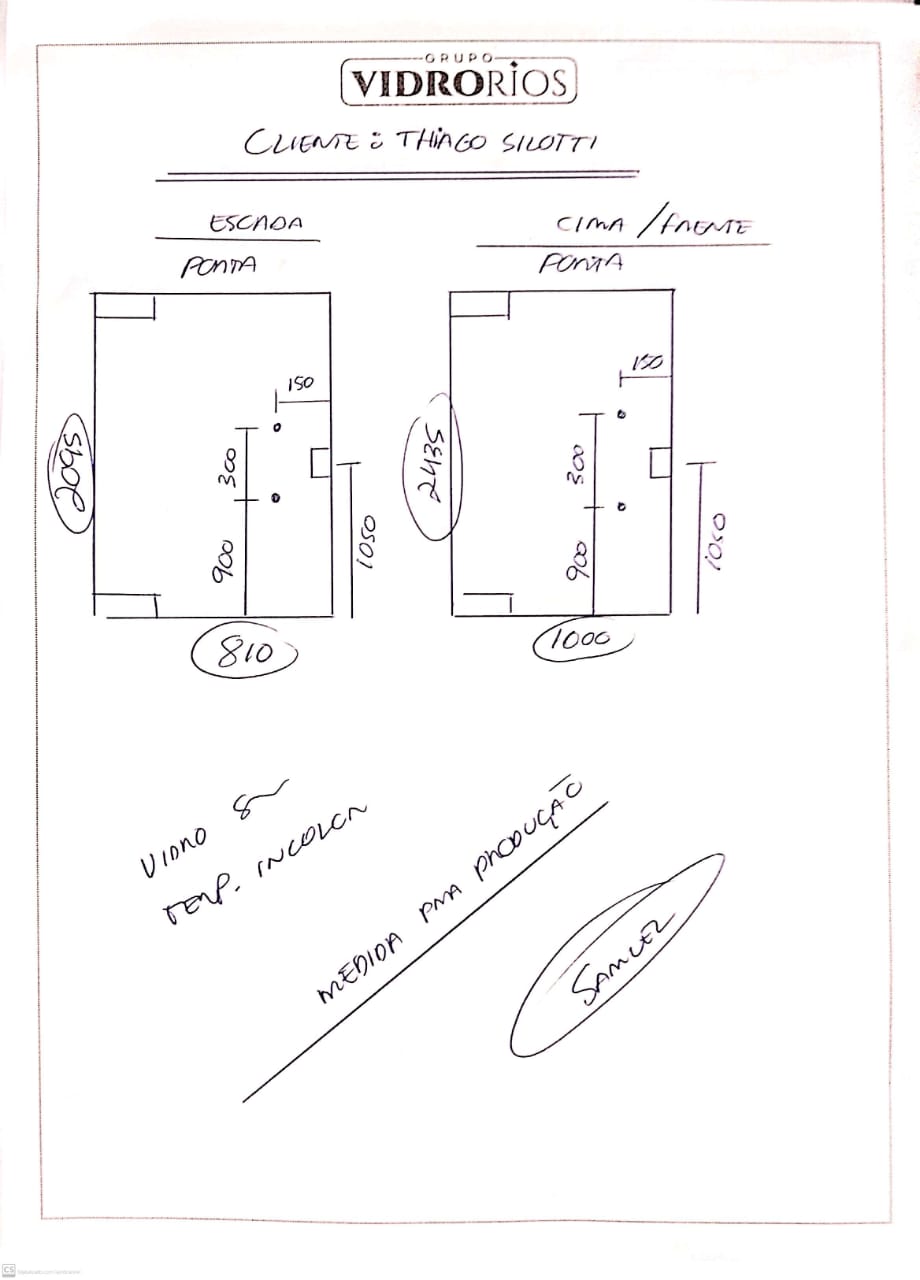 GRUPO
VIDRORIOS
CLIENTE: THIAGO SILOTTI
ESCADA
PORTA
CIMA / FRENTE
PORTA
150
300
900
1050
2095
810
150
300
900
1050
2435
1000
VIDRO 8
TEMP. INCOLOR
MEDIDA PRA PRODUÇÃO
SAMUEL
CS